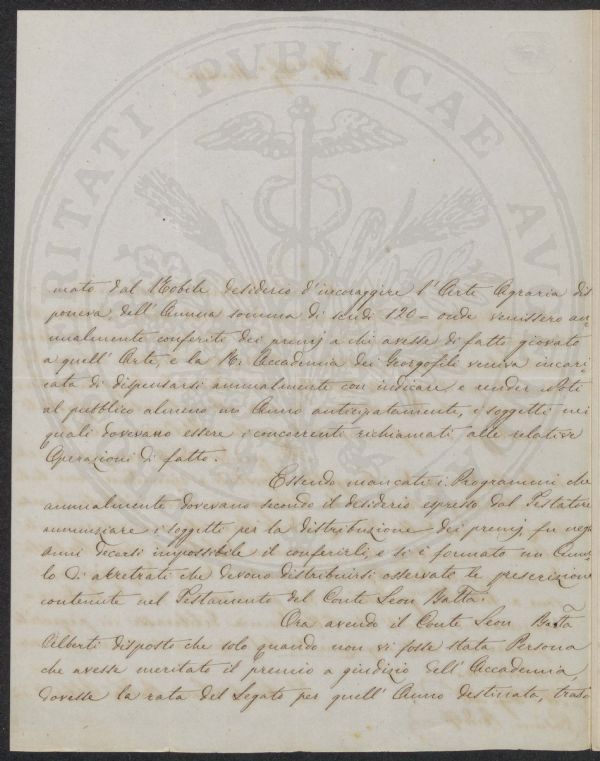 PROSPERITATI PVBLICAE AV
mato dal Nobile desiderio d'incoraggire l'Arte Agraria dis
poneva dell'Annua somma di scudi 120 = onde venissero an
nualmente conferiti dei premj a chi avesse di fatto giovato
a quell'Arte, e la R. Accademia dei Georgofili veniva incari
cata di dispensarsi annualmente con indicare e render Noti
al pubblico almeno un Anno anticipatamente, i soggetti nei
quali dovevano essere i concorrenti richiamati alle relative
Operazioni di fatto.
Essendo mancati i Programmi che
annualmente dovevano secondo il desiderio espresso dal Testatore
annunziare i soggetti per la distribuzione dei premj, fu negl
anni decorsi impossibile il conferirli, e si è formato un Cumu
lo di arretrati che devono distribuirsi osservate le prescrizioni
contenute nel Testamento del Conte Leon Batta.
Ora avendo il Conte Leon Batta
Alberti disposto che solo quando non vi fosse stata Persona
che avesse meritato il premio a giudizio dell'Accademia,
dovesse la rata del Legato per quell'Anno destinata,